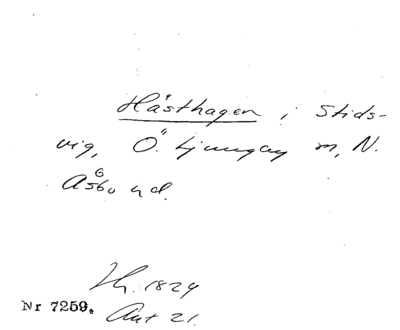 Hästhagen i Stids-
vig, Ö. Ljungby m, N.
Åsbo hd.
1824
Nr 7259. Akt 21.